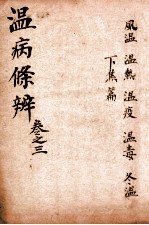 風温 温熱 温疫 温毒 冬温
下焦篇
温病條辨
叁之三